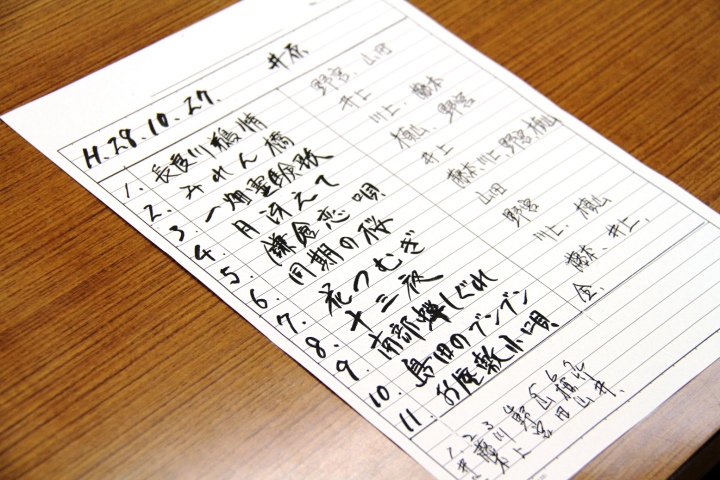 井原
H.28.10.27.
1. 長良川鵜情 野宮、山田
2. みれん橋 井上
3. 一畑霊験歌 川上、藤本
4. 月冴えて 横山、野宮
5. 鎌倉恋唄 井上
6. 同期の桜 藤本、川上、野宮、横山
7. 花つむぎ 山田
8. 十三夜 野宮
9. 南部蝉しぐれ 川上、横山
10. 島田のブンブン 藤本、井上、
11. お座敷小唄 全、
1 2 3 4 5 6